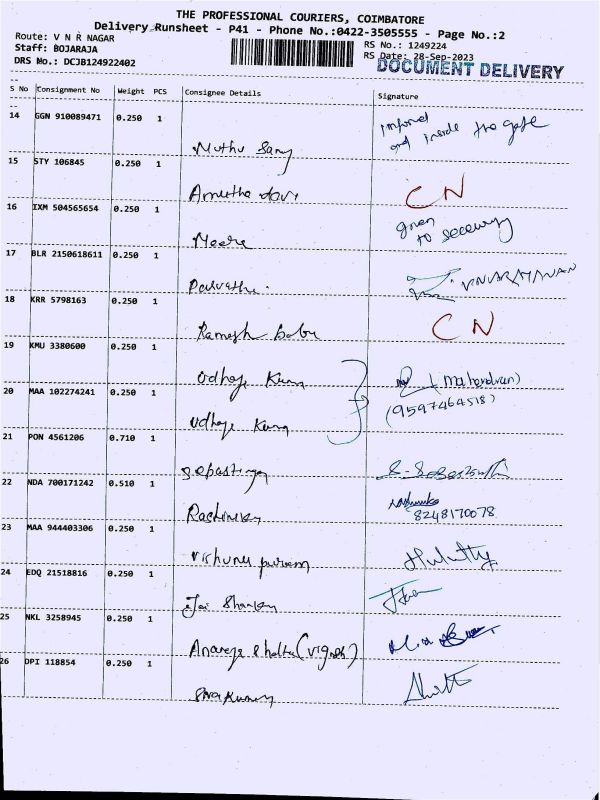 THE PROFESSIONAL COURIERS, COIMBATORE
Delivery Runsheet - P41 - Phone No.:0422-3505555 - Page No.:2
Route: V N R NAGAR
Staff: BOJARAJA
DRS No.: DCJB124922402
RS No.: 1249224
RS Date: 28-Sep-2023
DOCUMENT DELIVERY
S No Consignment No Weight PCS Consignee Details Signature
14 GGN 910089471 0.250 1
Muthu Samy inside the gate
15 STY 106845 0.250 1
Amutha devi CN
16 IXM 504565654 0.250 1
Meera given to security
17 BLR 2150618611 0.250 1
Parvathi
18 KRR 5798163 0.250 1
Ramesh Babu CN
19 KMU 3380600 0.250 1
Udhaya Kumar (Mahendran)
20 MAA 102274241 0.250 1
(9597464518)
Udhaya Kumar
21 PON 4561206 0.710 1
22 NDA 700171242 0.510 1
8248170078
23 MAA 944403306 0.250 1
24 EDQ 21518816 0.250 1
Jai Shankar
25 NKL 3258945 0.250 1
26 DPI 118854 0.250 1